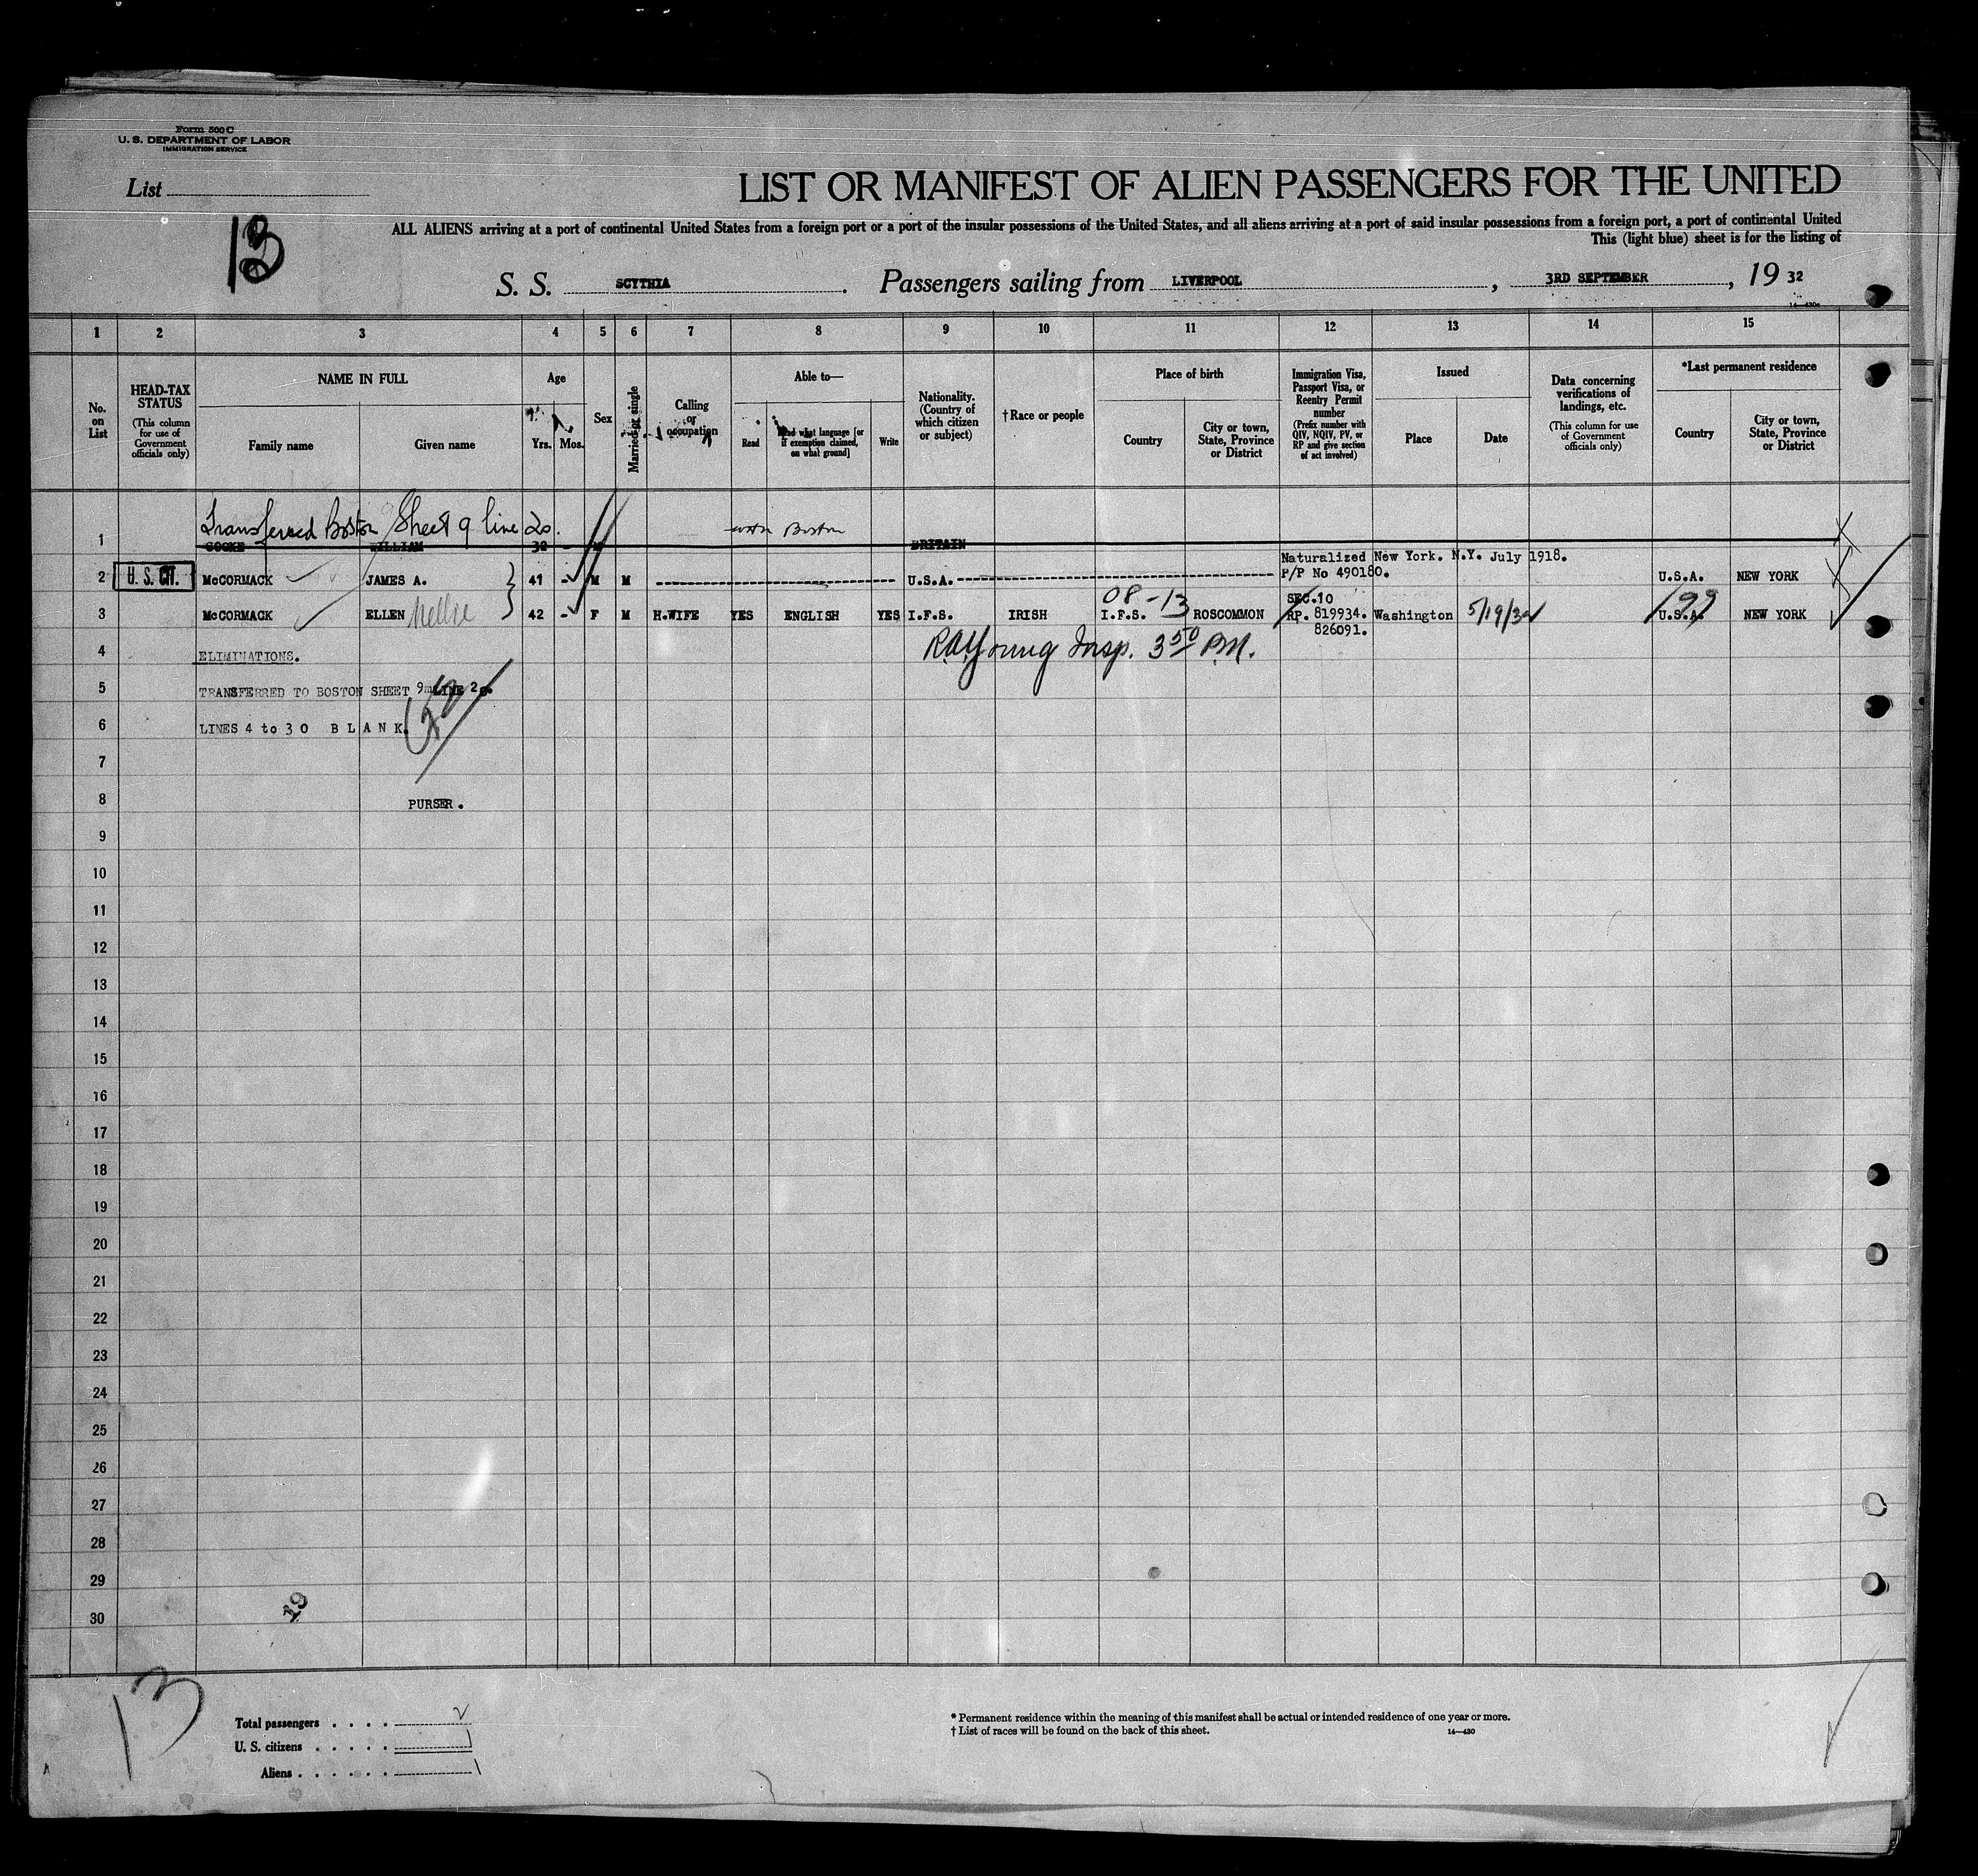 Form 500 C
U. S. DEPARTMENT OF LABOR
IMMIGRATION SERVICE
List
13
LIST OR MANIFEST OF ALIEN PASSENGERS FOR THE UNITED
ALL ALIENS arriving at a port of continental United States from a foreign port or a port of the insular possessions of the United States, and all aliens arriving at a port of said insular possessions from a foreign port, a port of continental United
This (light blue) sheet is for the listing of
S. S. SCYTHIA. Passengers sailing from LIVERPOOL, 3RD SEPTEMBER, 19 32
1 2 3 4 5 6 7 8 9 10 11 12 13 14 15
No. on List
HEAD-TAX STATUS
(This column for use of Government officials only)
NAME IN FULL
Family name
Given name
Age
Yrs. Mos.
Sex
Married or single
Calling or occupation
Able to—
Read
Read what language [or if exemption claimed, on what ground]
Write
Nationality. (Country of which citizen or subject)
†Race or people
Place of birth
Country
City or town, State, Province or District
Immigration Visa, Passport Visa, or Reentry Permit number
(Prefix number with QIV, NQIV, PV, or RP and give section of act involved)
Issued
Place
Date
Data concerning verifications of landings, etc.
(This column for use of Government officials only)
*Last permanent residence
Country
City or town, State, Province or District
Transferred Boston Sheet 9 line 20. Boston
1 COOKE WILLIAM BRITAIN
Naturalized New York. N.Y. July 1918.
2 U. S. CIT. McCORMACK JAMES A. 41 - M M U.S.A. P/P No 490180. U.S.A. NEW YORK
08-13 SEC.10 99
3 McCORMACK ELLEN Nellie 42 - F M H.WIFE YES ENGLISH YES I.F.S. IRISH I.F.S. ROSCOMMON RP. 819934. Washington 5/19/32 U.S.A. NEW YORK
826091.
4 ELIMINATIONS. Young Insp. 3 50 P.M.
5 TRANSFERRED TO BOSTON SHEET 9 LINE 20.
6 LINES 4 to 30 B L A N K.
7
8 PURSER.
9
10
11
12
13
14
15
16
17
18
19
20
21
22
23
24
25
26
27
28
29
30
19
13
Total passengers . . . . 2
U. S. citizens . . . . . 1
Aliens . . . . . . 1
* Permanent residence within the meaning of this manifest shall be actual or intended residence of one year or more.
† List of races will be found on the back of this sheet.
14—430